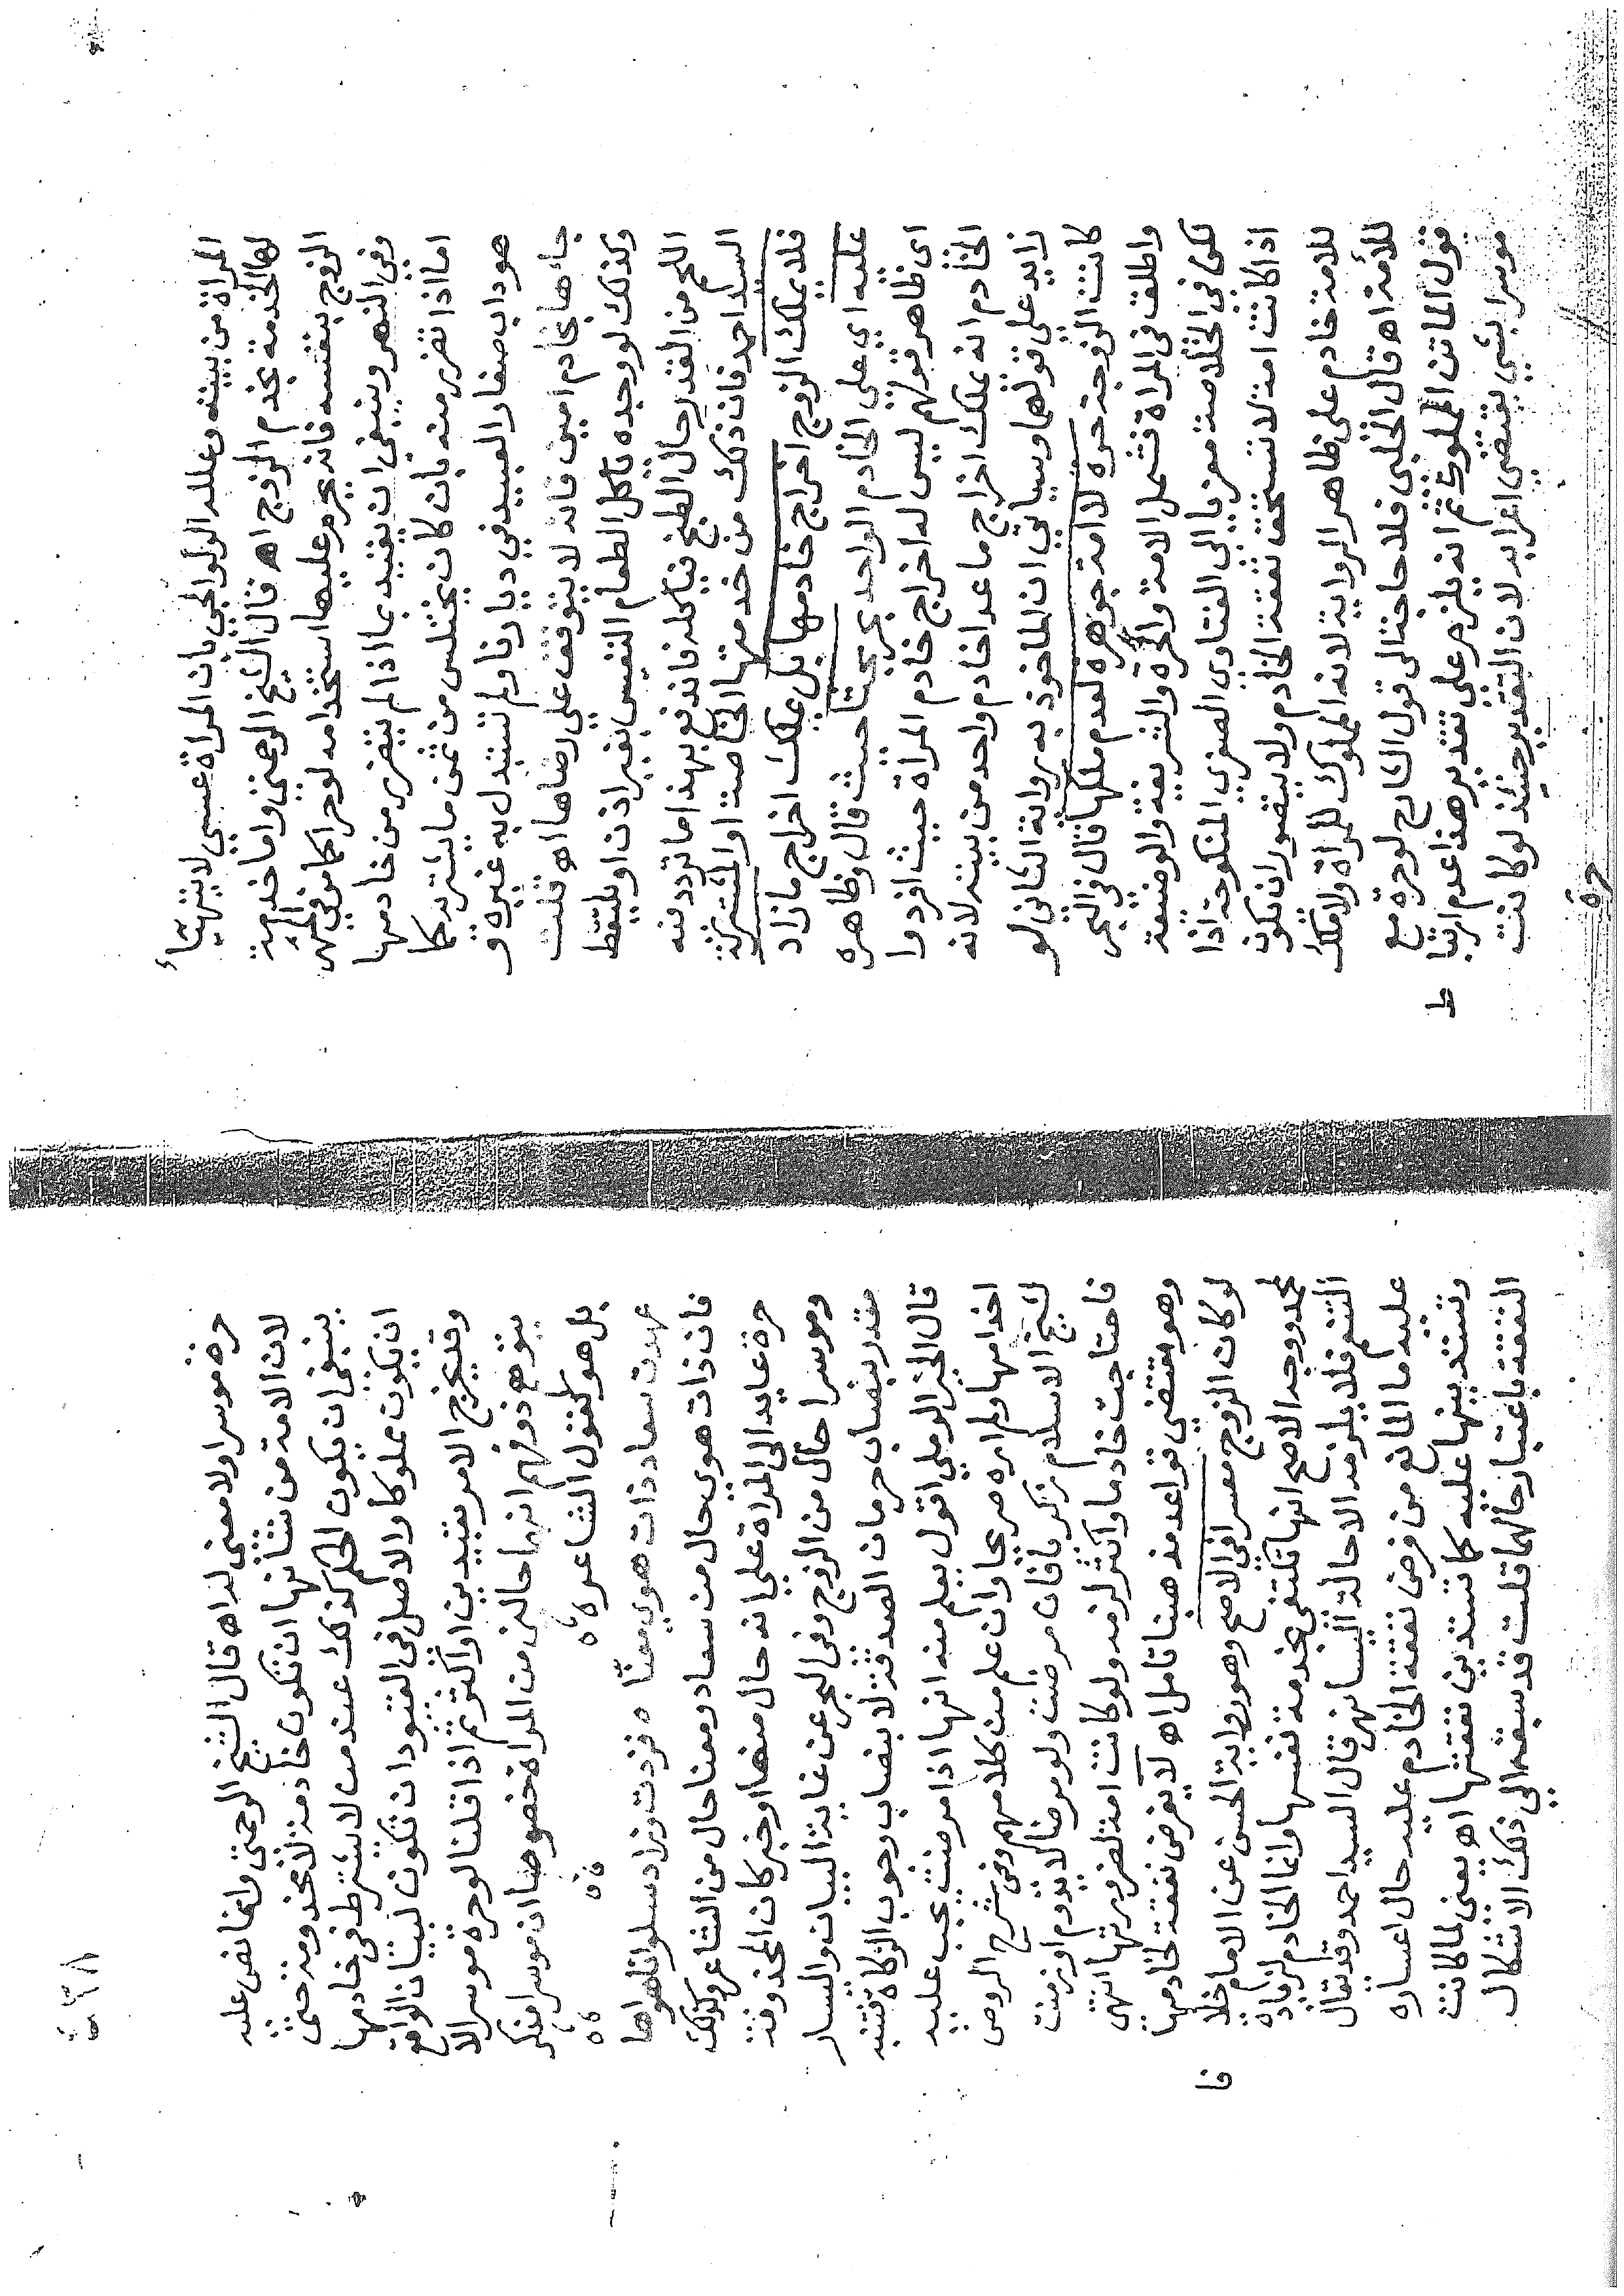 المراة من بيته وعلله الولوالجي بان المراة عسي لا يتهيأ
لها الخدمة بخدم الزوج اه قال الشيخ الرحمتي واما خدمة
الزوج بنفسه فانه يحرم عليها استخدامه لو حرا كما مر في المهر
وفي النهر وينبغي ان يقيد بما اذا لم يتضرر من خادمها
اما اذا تضرر منه بان كان يختلس من ثمن ما يشتريه كما
هو داب صغار العبيد في ديارنا ولم تستبدل به غيره و
جأها بخادم امين فانه لا يتوقف علي رضاها اه قلت
وكذلك لو وجده يأكل الطعام النفيس بغير اذن او يلتقط
اللحم من القدر حال الطبخ فيأكله فاندفع بهذا ما تردد فيه
السيد احمد فان ذلك من خدمتها الخاصة او المشتركة
فلا يملك الزوج اخراج خادمها بل يملك اخراج ما زاد
عليه اي علي الخادم الواحد بحر بحثا حيث قال وظاهره
اي ظاهر قولهم ليس له اخراج خادم المراة حيث افردوا
الخادم انه يملك اخراج ما عدا خادم واحد من بيته لانه
زايد علي قولهما وسياتي ان الماخوذ به رواية الثاني لو
كانت الزوجة حرة لا امة جوهرة لعدم ملكها قال في البحر
واطلق في المراة فشمل الامة والحرة والشريفة والوضيعة
لكن في الخلاصة معزيا الي الفتاوي الصغري المنكوحة اذا
اذا كانت امة لا تستحق نفقة الخادم ولا يتصور ان تكون
للامة خادم علي ظاهر الرواية لانه المملوك للمراة ولا ملك
للأمة اه قال الحلبي فلا حاجة الي قول الشارح لو حرة مع
قول الماتن المملوك ثم انه يلزم علي تقدير هذا عدم ارتباط
موسرا بشي يقتضي اعرابه لان التقدير حينئذ لو كانت
حرة
٤٣٨
حرة موسرا ولا معني له اه قال الشيخ الرحمتي وانما نص عليه
لان الامة من شانها ان تكون خادمة لا مخدومة حتي
ينبغي ان يكون الحكم كذلك عند من لا يشترط في خادمها
ان يكون مملوكا والاصل في القيود ان تكون لبيان الواقع
وقد يخرج الامر بقيدين او اكثر ثم اذا قلنا لو حرة موسرا لا
يتوهم ذو فهم انهما حالان من المراة خصوصا ان موسرا مذكر
بل هو كقول الشاعر
عهدت سعاد ذات هوي معنا فزدت وزاد سلوانا هواها
فان ذات هوي حال من سعاد ومعنا حال من الشاعر وكذلك
حرة عايد الي المراة علي انه حال منها او خبر كان المحذوفة
وموسرا حال من الزوج وفي البحر عن غاية البيان واليسار
مقدر بنصاب حرمان الصدقة لا بنصاب وجوب الزكاة تنبيه
قال الخير الرملي اقول يعلم منه انها اذا مرضت يجب عليه
اخدامها ولم اره صريحا وان علم من كلامهم وفي شرح الروض
لشيخ الاسلام زكريا فان مرضت ولو مرضا لا يدوم او زمنت
فاحتاجت خادما واكثر لزمه ولو كانت امة لضرورتها انتهي
وهو مقتضي قواعد مذهبنا تامل اه لا يفرض نفقة لخادمها
لو كان الزوج معسرا في الاصح وهو رواية الحسن عن الامام خلافا
لمحمد ووجه الاصح انها تكتفي بخدمة نفسها وانما الخادم لزيادة
التنعم فلا يلزمه الا حالة اليسار نهر قال السيد احمد وقد يقال
عليه ما المانع من فرض نفقة الخادم عليه حال اعساره
وتستدينها عليه كما تستدين نفقتها اه يعني لما كانت
النفقة باعتبار حالهما قلت قد سبقه الي ذلك الاشكال